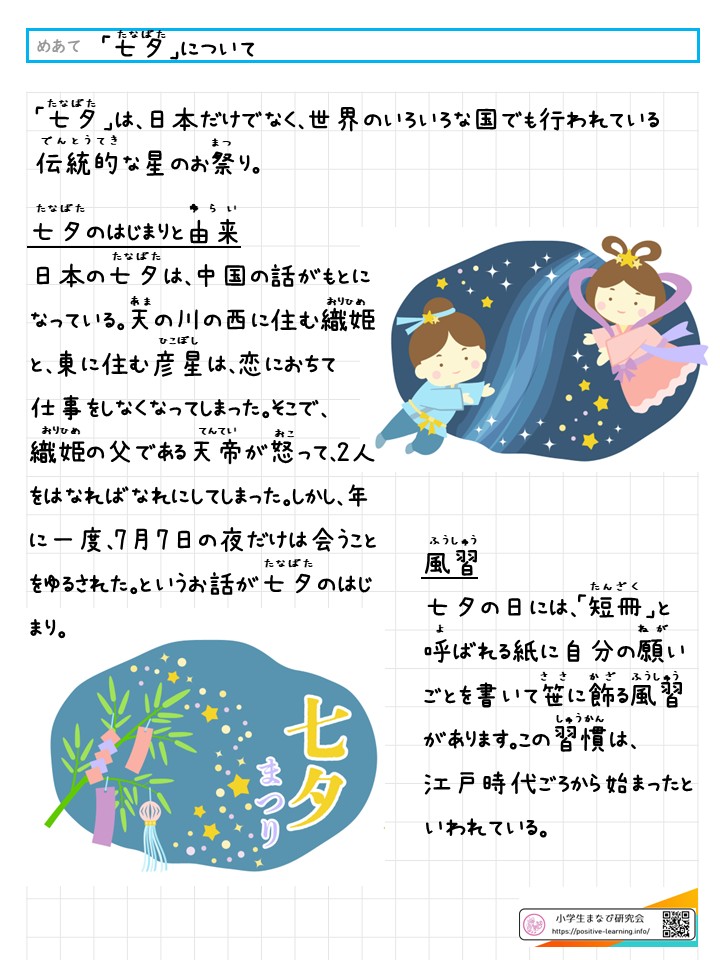 めあて 「七夕」について
たなばた
「七夕」は、日本だけでなく、世界のいろいろな国でも行われている
たなばた
伝統的な星のお祭り。
でんとうてき まつ
七夕のはじまりと由来
たなばた ゆらい
日本の七夕は、中国の話がもとに
たなばた
なっている。天の川の西に住む織姫
あま おりひめ
と、東に住む彦星は、恋におちて
ひこぼし
仕事をしなくなってしまった。そこで、
織姫の父である天帝が怒って、2人
おりひめ てんてい おこ
をはなればなれにしてしまった。しかし、年
に一度、7月7日の夜だけは会うこと
をゆるされた。というお話が七夕のはじ
たなばた
まり。
風習
ふうしゅう
七夕の日には、「短冊」と
たんざく
呼ばれる紙に自分の願い
よ ねが
ごとを書いて笹に飾る風習
ささ かざ ふうしゅう
があります。この習慣は、
しゅうかん
江戸時代ごろから始まったと
いわれている。
七夕
まつり
小学生まなび研究会
https://positive-learning.info/